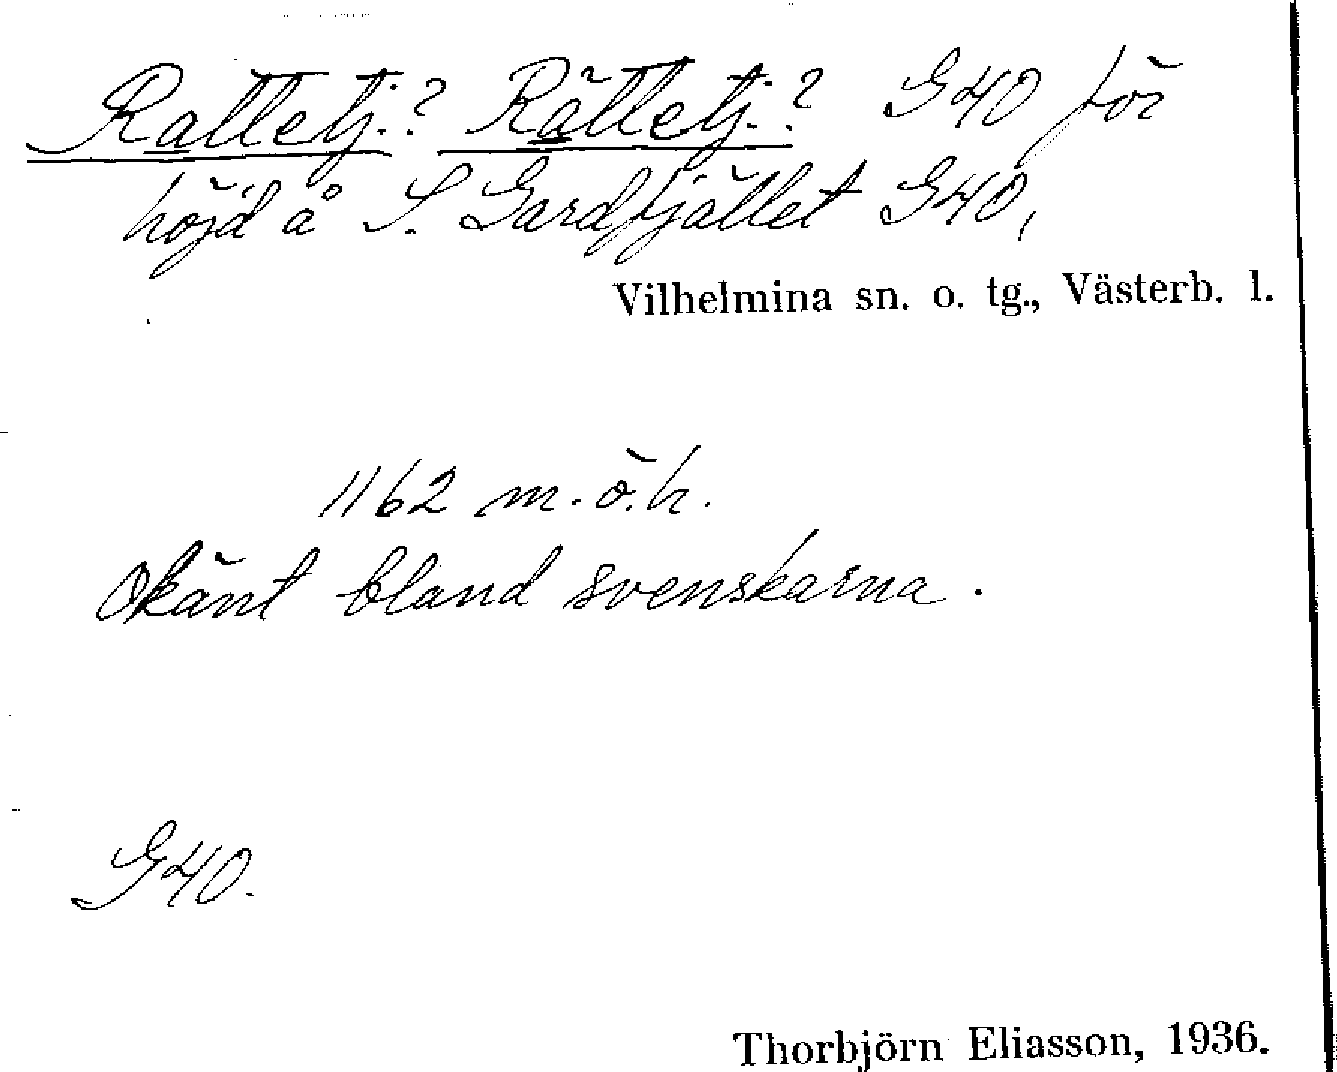 Rattetj.? Rättetj.? G40 för
höjd å S. Gardfjället G40,
Vilhelmina sn. o. tg., Västerb. l.
1162 m.ö.h.
Okänt bland svenskarna.
G40.
Thorbjörn Eliasson, 1936.